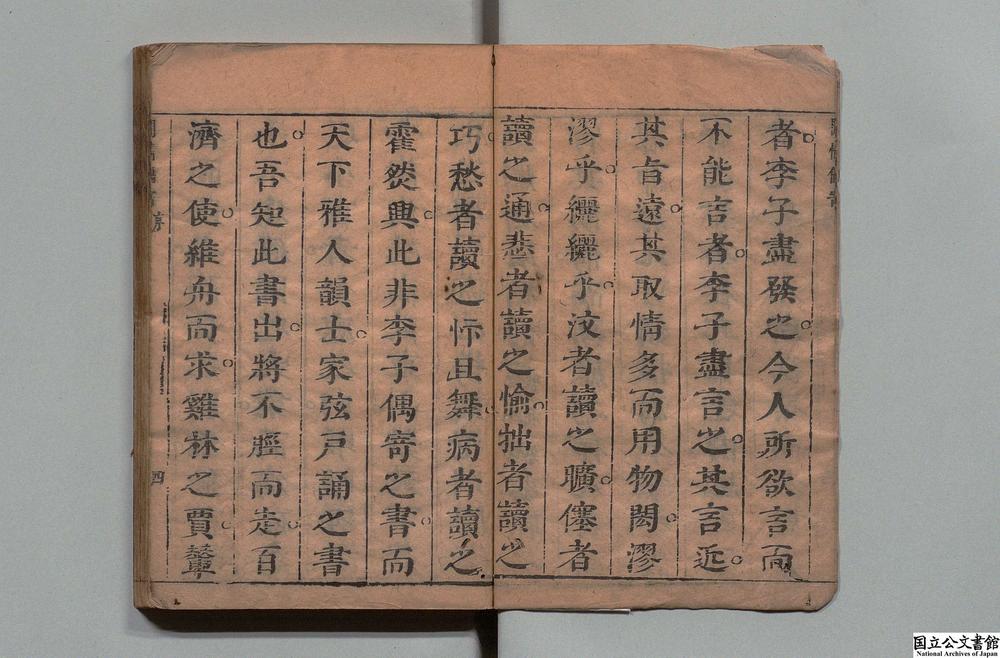 者李子盡發之今人所欲言而
不能言者李子盡言之其言近
其旨遠其取情多而用物閎漻
漻乎纚纚乎汶者讀之曠僿者
讀之通悲者讀之愉拙者讀之
巧愁者讀之忭且舞病者讀之
霍然興此非李子偶寄之書而
天下雅人韻士家弦戶誦之書
也吾知此書出將不脛而走百
濟之使維舟而求雞林之賈輦
序
四
国立公文書館
National Archives of Japan